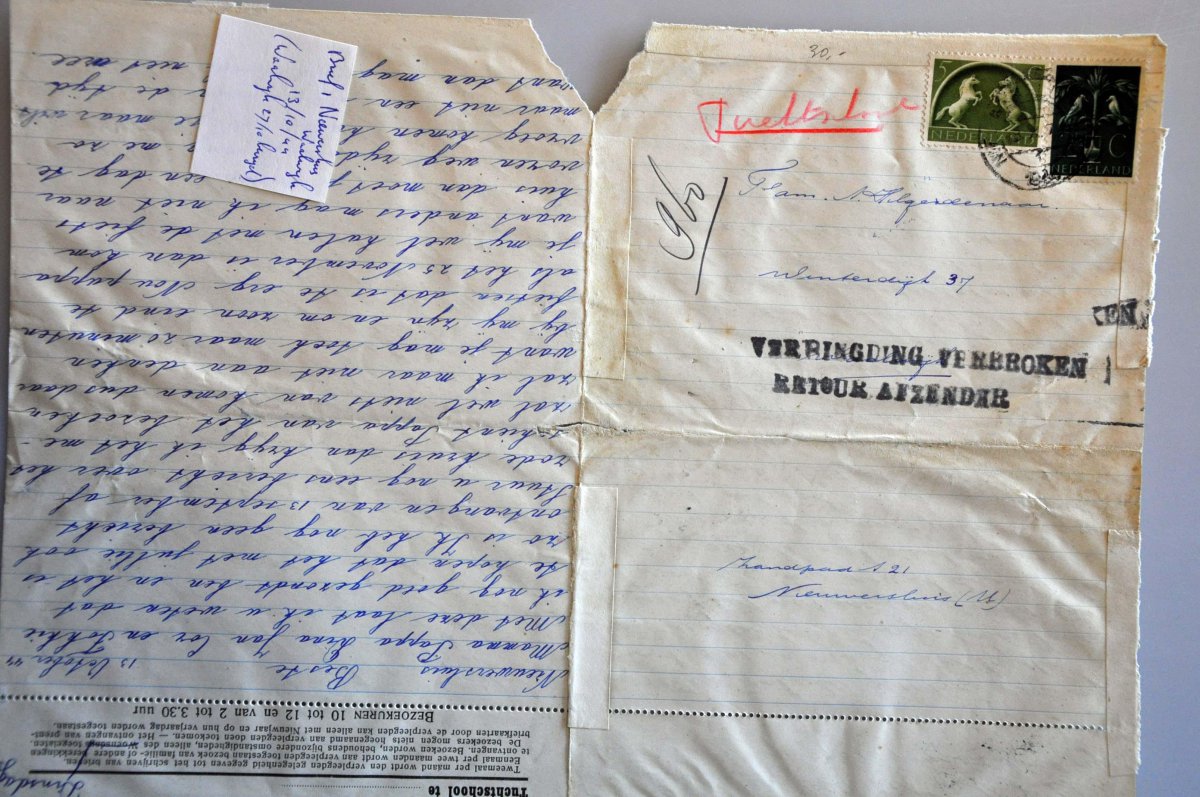 Tuchtschool te
Tweemaal per maand wordt den verpleegden gelegenheid gegeven tot het schrijven van brieven.
Eenmaal per twee maanden wordt aan verpleegden toegestaan bezoek van familie- of andere betrekkingen
te ontvangen. Bezoeken worden, behoudens bijzondere omstandigheden, alleen des Woensdags toegelaten.
Dinsdag
De bezoekers mogen niets hoegenaamd aan verpleegden doen toekomen. — Het ontvangen van prent-
briefkaarten door verpleegden kan alleen met Nieuwjaar en op hun verjaardag worden toegestaan.
BEZOEKUREN 10 tot 12 en van 2 tot 3.30 uur
Nieuwersluis 13 October 44
Beste
Mamma Pappa Lina Jan Cor en Fokkie
Met deze laat ik u weten dat
ik nog goed gezond ben en het is
te hopen dat het met jullie ook
zo is Ik heb nog geen bericht
ontvangen van 13 september of
stuur u nog eens bericht over het
rode kruis dan kryg ik het me-
schient Pappa van het bezoeken
zal wel niets van komen dus daar
zal ik maar niet aan denken
want je mag toch maar 20 minuten
by my zyn en om zoon eind te
fietsen dat is te erg Nou pappa
als het 25 November is dan kom
je my wel halen met de fiets
want anders mag ik niet naar
huis dan moet een dag te
voren weg ryd me zo
vroeg komen je maar wilt
maar niet een de tyd
want dan mag niet mee
Brief: Nieuwersluis
13/10/44
30,-
5
NEDERLAND
C
NEDERLAND
960
Fam. N. Hilgerdenaar
Winterdijk 37
VERBINGDING VERBROKEN
RETOUR AFZENDER
KEN
Zandpad A 21
Nieuwersluis (U)